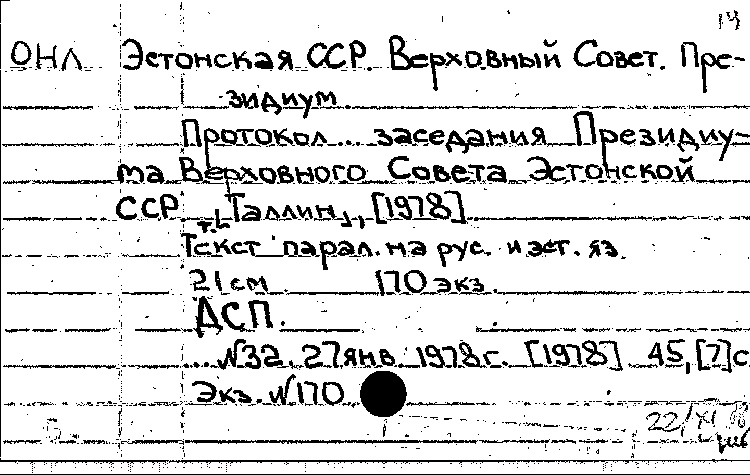 14
ОНЛ Эстонская ССР. Верховный Совет. Пре-
зидиум
Протокол... заседания Президиу-
ма Верховного Совета Эстонской
ССР. т. [Таллин], [1978]
Текст парал. на рус. и эст. яз.
21 см 170 экз.
ДСП.
... N32. 27 янв. 1978 г. [1978] 45, [7] с
Экз. N170
22/XI